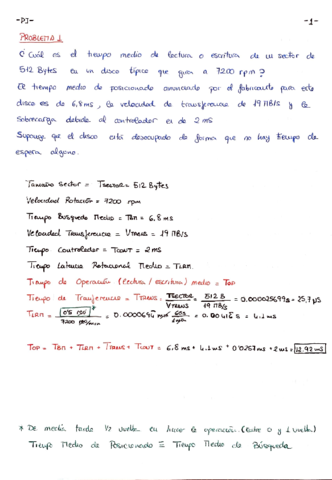 -PI- -1-
PROBLEMA 1
¿Cuál es el tiempo medio de lectura o escritura de un sector de
512 Bytes en un disco típico que gira a 7200 rpm?
El tiempo medio de posicionado anunciado por el fabricante para este
disco es de 6,8 ms, la velocidad de transferencia de 19 MB/s y la
sobrecarga debida al controlador es de 2 ms
Suponga que el disco está desocupado de forma que no hay tiempo de
espera alguno.
Tamaño Sector = TSECTOR = 512 Bytes
Velocidad Rotación = 7200 rpm
Tiempo Búsqueda Medio = TBM = 6,8 ms
Velocidad Transferencia = VTRANS = 19 MB/s
Tiempo Controlador = TCONT = 2 ms
Tiempo Latencia Rotacional Medio = TLRM.
Tiempo de Operación (lectura / escritura) medio = TOP
Tiempo de Transferencia = TTRANS = TSECTOR / VTRANS = 512 B / 19 MB/s = 0.0000256979 s = 25,7 μs
TLRM = 0'5 rot* / 7200 rot/min = 0.0000694 min 60s / 1 min = 0.00416 s = 4.1 ms
TOP = TBM + TLRM + TTRANS + TCONT = 6.8 ms + 4.1 ms + 0.0257 ms + 2 ms = 12.92 ms
* De media tarda 1/2 vuelta en hacer la operación (entre 0 y 1 vuelta)
Tiempo Medio de Posicionado ≡ Tiempo Medio de Búsqueda